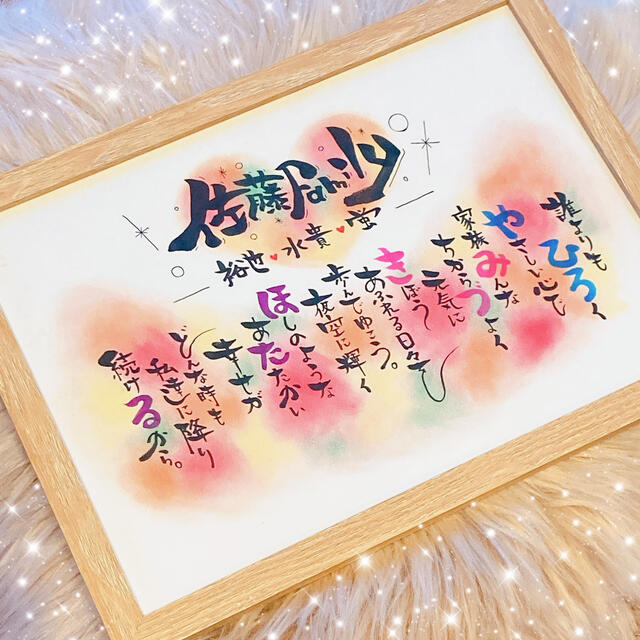 佐藤Family
裕也♥水貴♥蛍
誰よりも
ひろく
やさしい心で
家族みんな
ちからづよく
元気に
きぼう
あふれる日々を
歩んでゆこう。
夜空に輝く
ほしのような
あたたかい
幸せが
どんな時も
私たちに降り
続けるから。